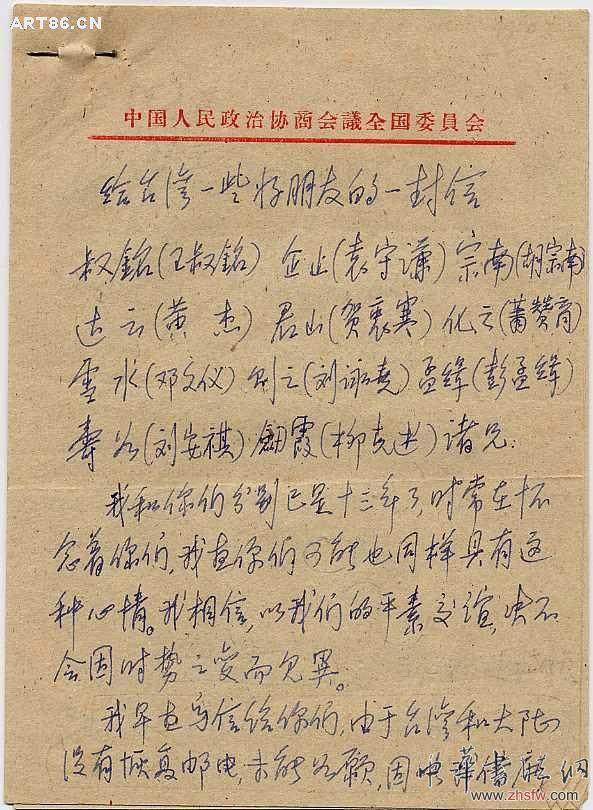 ART86.CN
中国人民政治协商会議全国委員会
给台湾一些好朋友的一封信
叔銘(王叔銘) 企止(袁守谦) 宗南(胡宗南)
达云(黄杰) 君山(贺衷寒) 化之(萧赞育)
雪水(邓文仪) 则之(刘詠尧) 孟缉(彭孟缉)
寿如(刘安祺) 劍霞(柳克述) 诸兄:
我和你们分别已是十三年了,时常在怀
念着你们,我查你们可能也同样具有这
种心情。我相信,以我们的平素交谊,决不
会因时势之变而见異。
我早查写信给你们,由于台湾和大陆
没有恢复邮电,未能如愿,因
www.zhsfw.com